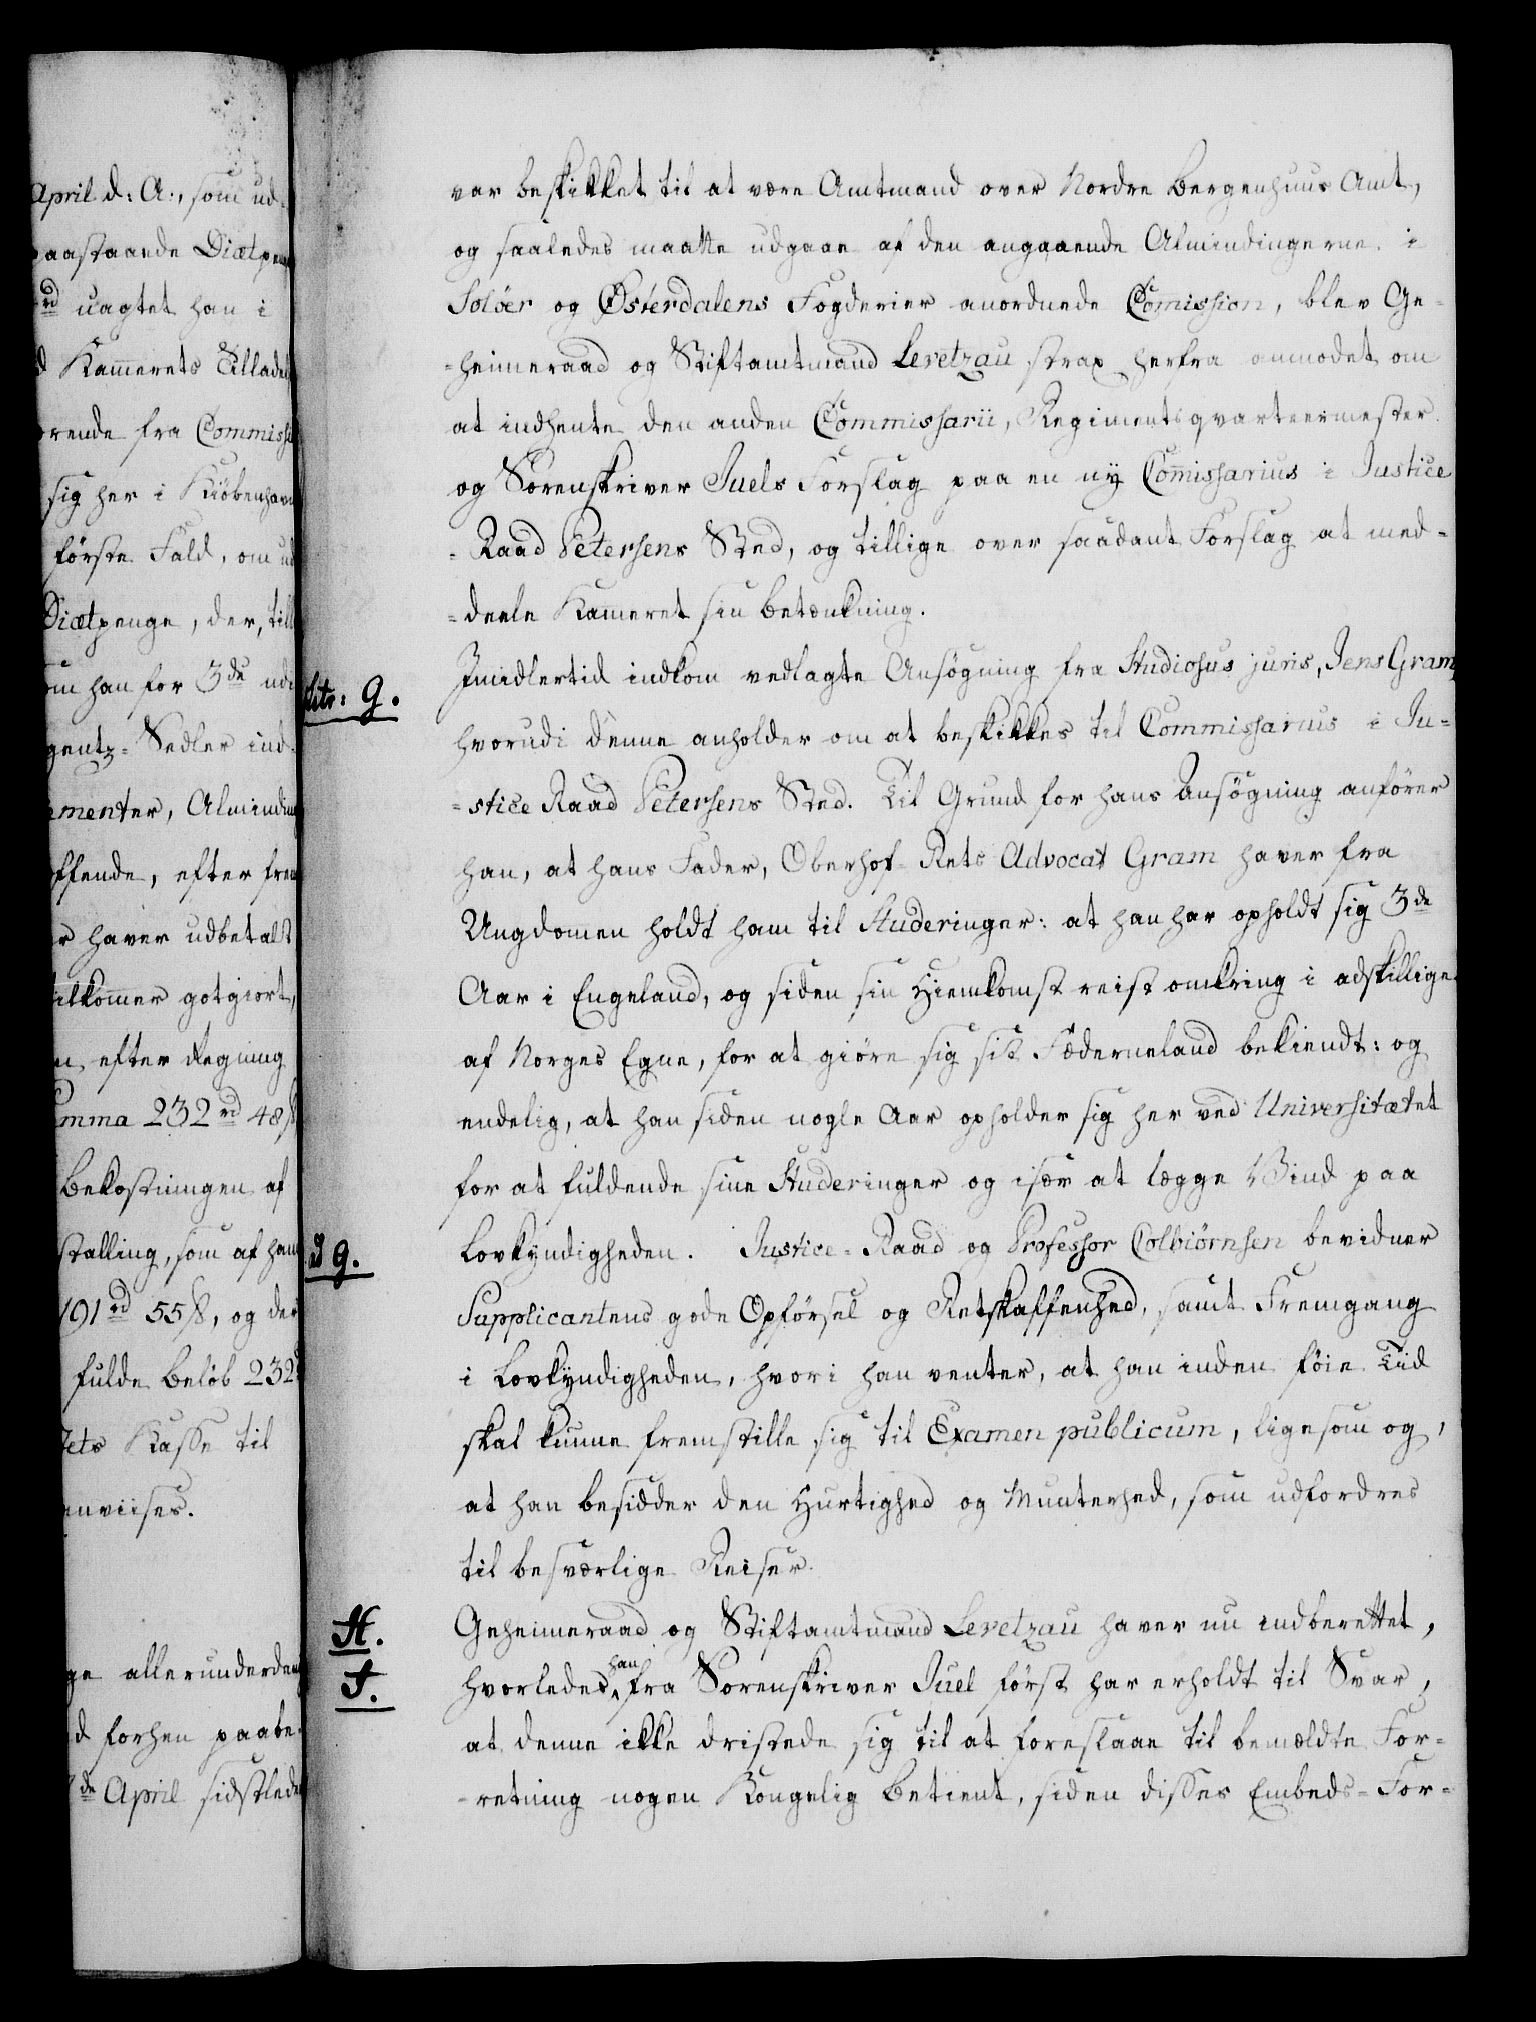 April d: A:, som ud-
paastaaende Diætpen
rd uagtet han i
Kam̅erets Tillade
rende fra Commiss
sig her i Kiöbenhavn
förste Fald, om ud
Diætpenge, der, till
om han for 3de
gentz-Sedler ind-
ementer, Alminding
ffende, efter frem
r haver udbetalt
ilkom̅er gotgiort,
efter Regning
um̅a 232 rd 48 ß
Bekostningen af
stalling, som af ham
191 rd 55 ß, og der
fulde Belöb 232
tets Kasse til
anviises.
ge allerunderdan
d forhen paabe-
de April sidstled
var beskikket til at være Amtmand over Nordre Bergenhuus Amt,
og saaledes maatte udgaae af den angaaende Almindingerne i
Solöer og Österdalens Fogderier anordnede Com̅ission, blev Ge-
-heimeraad og Stiftamtmand Levetzau strax herfra anmodet om
at indhente den anden Commissarii, Regimentsqvarteermester
og Sorenskriver Juels Forslag paa en ny Com̅issarius i Justice
-Raad Petersens Sted, og tillige over saadant Forslag at med-
-deele Kam̅eret sin Betænkning.
Litr: G.
Imidlertid indkom vedlagte Ansögning fra Studiosus juris, Jens Gram,
hvorudi denne anholder om at beskikkes til Commissarius i Ju-
-stice Raad Petersens Sted. Til Grund for hans Ansögning anförer
han, at hans Fader, Oberhof-Rets Advocat Gram haver fra
Ungdomen holdt ham til Studeringer: at han har opholdt sig 3de
Aar i Engeland, og siden sin Hiemkomst reist omkring i adskillige
af Norges Egne, for at giöre sig sit Fæderneland bekiendt: og
endelig, at han siden nogle Aar opholder sig her ved Universitætet
for at fuldende sine Studeringer og især at lægge Vind paa
d g.
Lovkyndigheden. Justice-Raad og Professor Colbiörnsen bevidner
Supplicantens gode Opförsel og Retskaffenhed, samt Fremgang
i Lovkyndigheden, hvori han venter, at han inden föie Tid
skal kunne fremstille sig til Examen publicum, ligesom og,
at han besidder den Hurtighed og Munterhed, som udfordres
til besværlige Reiser.
H.
Geheimeraad og Stiftamtmand Levetzau haver nu indberettet,
J.
hvorledes han fra Sorenskriver Juel först har erholdt til Svar,
at denne ikke dristede sig til at foreslaae til bemældte For-
-retning nogen Kongelig Betient, siden disses Embeds-For-